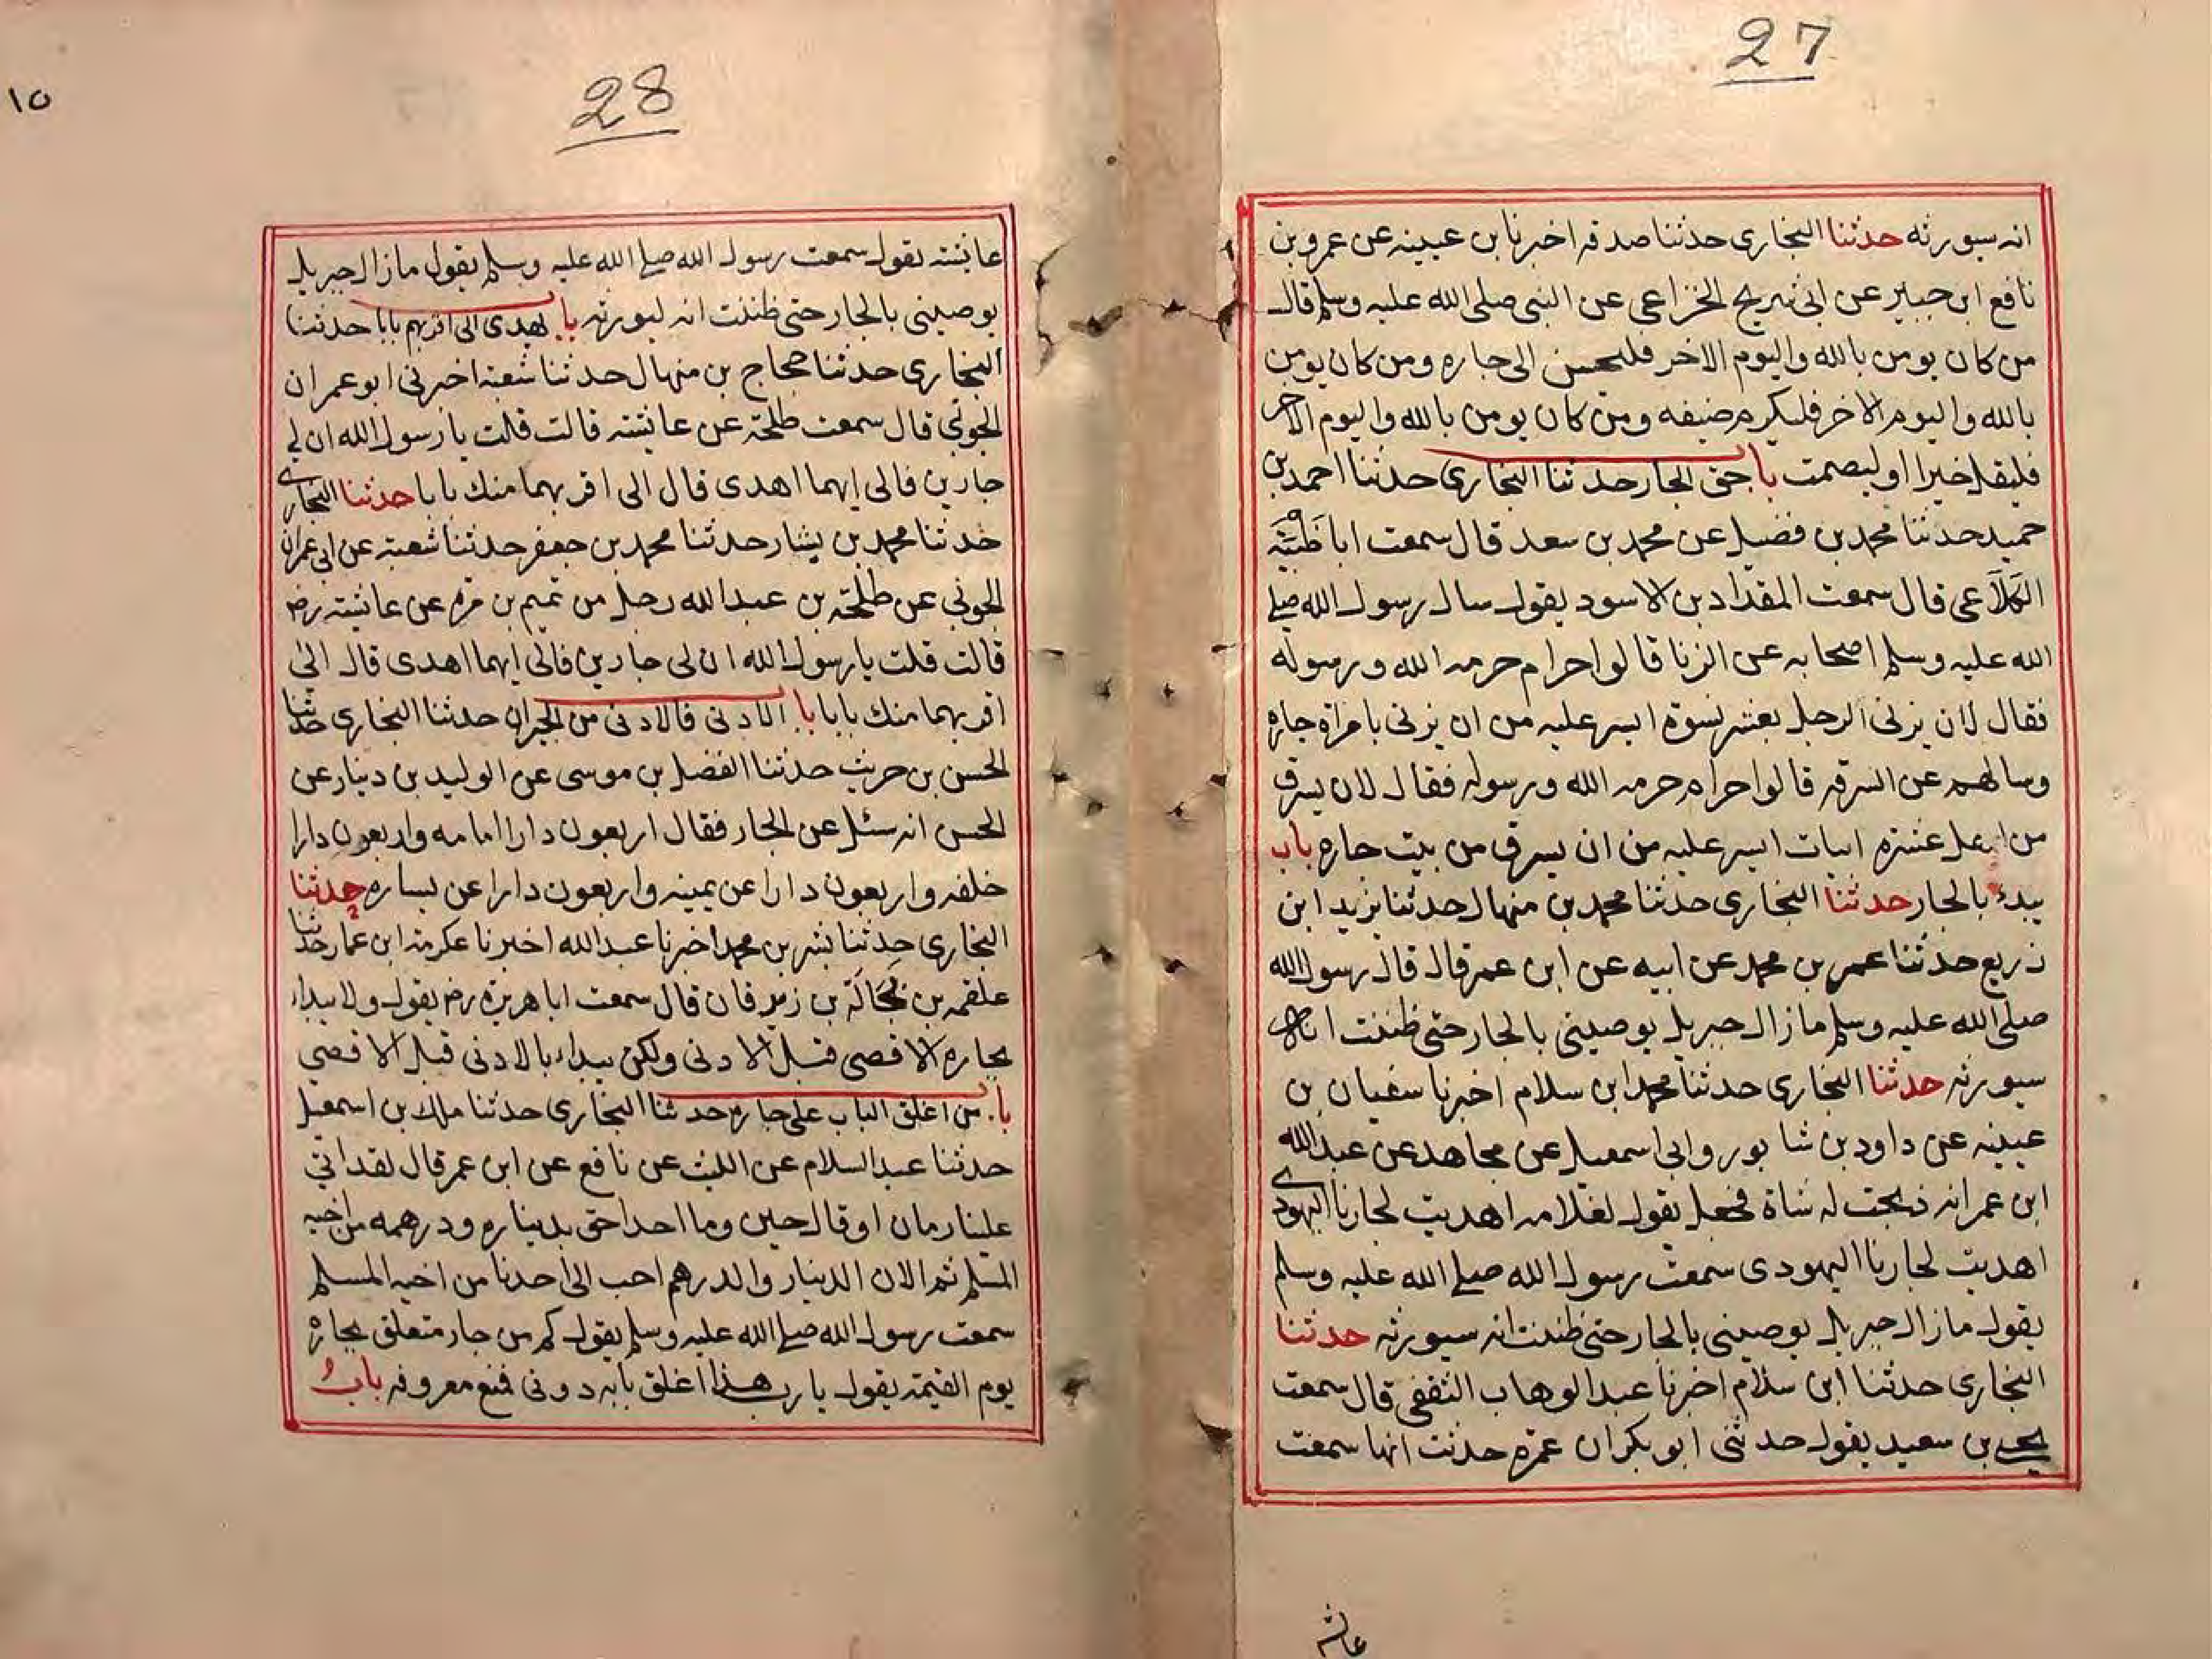 27
انه سيورثه حدثنا البخارى حدثنا صدقه اخبرنا بن عيينه عن عمرو بن
نافع ابن جبير عن ابى شريح الخزاعى عن النبى صلى الله عليه وسلم قال
من كان يومن بالله واليوم الاخر فليحسن الى جاره ومن كان يومن
بالله واليوم الاخر فليكرم ضيفه ومن كان يومن بالله واليوم الاخر
فليقل خيرا او ليصمت باب حق الجار حدثنا البخارى حدثنا احمد بن
حميد حدثنا محمد بن فضيل عن محمد بن سعد قال سمعت ابا ظَبْيَة
الكَلَاعى قال سمعت المقداد بن الاسود يقول سال رسول الله صلے
الله عليه وسلم اصحابه عن الزنا قالوا حرام حرمه الله ورسوله
فقال لان يزنى الرجل بعشر نسوة ايسر عليه من ان يزنى بامراة جاره
وسالهم عن السرقه قالوا حرام حرمه الله ورسوله فقال لان يسرق
من اهل عشرة ابيات ايسر عليه من ان يسرق من بيت جاره باب
يبدء بالجار حدثنا البخارى حدثنا محمد بن منهال حدثنا يزيد ابن
زريع حدثنا عمر بن محمد عن ابيه عن ابن عمر قال قال رسول الله
صلى الله عليه وسلم ما زال جبريل يوصينى بالجار حتى ظننت انه
سيورثه حدثنا البخارى حدثنا محمد ابن سلام اخبرنا سفيان بن
عيينه عن داود بن شابور وابى اسمعيل عن مجاهد عن عبد الله
ابن عمر انه ذبحت له شاة فجعل يقول لغلامه اهديت لجارنا اليهودى
اهديت لجارنا اليهودى سمعت رسول الله صلے الله عليه وسلم
يقول ما زال جبريل يوصينى بالجار حتى ظننت انه سيورثه حدثنا
البخارى حدثنا ابن سلام اخبرنا عبد الوهاب الثقفى قال سمعت
يحيے بن سعيد يقول حدثنى ابو بكر ان عمرة حدثت انها سمعت
عائشه
28
١٥
عائشه تقول سمعت رسول الله صلے الله عليه وسلم يقول ما زال جبريل
يوصينى بالجار حتى ظننت انه ليورثه باب يهدى الى اقربهم بابا حدثنا
البخارى حدثنا حجاج بن منهال حدثنا شعبه اخبرنى ابو عمران
الجونى قال سمعت طلحة عن عائشه قالت قلت يا رسول الله ان لى
جارين فالى ايهما اهدى قال الى اقربهما منك بابا حدثنا البخارى
حدثنا محمد بن بشار حدثنا محمد بن جعفر حدثنا شعبة عن ابى عمران
الجونى عن طلحة بن عبد الله رجل من تميم بن مره عن عائشه رض
قالت قلت يا رسول الله ان لى جارين فالى ايهما اهدى قال الى
اقربهما منك بابا باب الادنى فالادنى من الجيران حدثنا البخارى حدثنا
الحسن بن حريث حدثنا الفضل بن موسى عن الوليد بن دينار عن
الحسن انه سئل عن الجار فقال اربعون دارا امامه واربعون دارا
خلفه واربعون دارا عن يمينه واربعون دارا عن يساره حدثنا
البخارى حدثنا بشر بن محمد اخبرنا عبد الله اخبرنا عكرمة ابن عمار حدثنا
علقمه بن بَجَالَة بن زبرقان قال سمعت ابا هريرة رض يقول ولا يبداء
بجاره الاقصى قبل الادنى ولكن يبداء بالادنى قبل الاقصى
باب من اغلق الباب على جاره حدثنا البخارى حدثنا ملك بن اسمعيل
حدثنا عبد السلام عن الليث عن نافع عن ابن عمر قال لقد اتى
علينا زمان او قال حين وما احد احق بديناره ودرهمه من اخيه
المسلم ثم الان الدينار والدرهم احب الى احدنا من اخيه المسلم
سمعت رسول الله صلے الله عليه وسلم يقول كم من جار متعلق بجاره
يوم القيمة يقول يا رب هذا اغلق بابه دونى فمنع معروفه باب